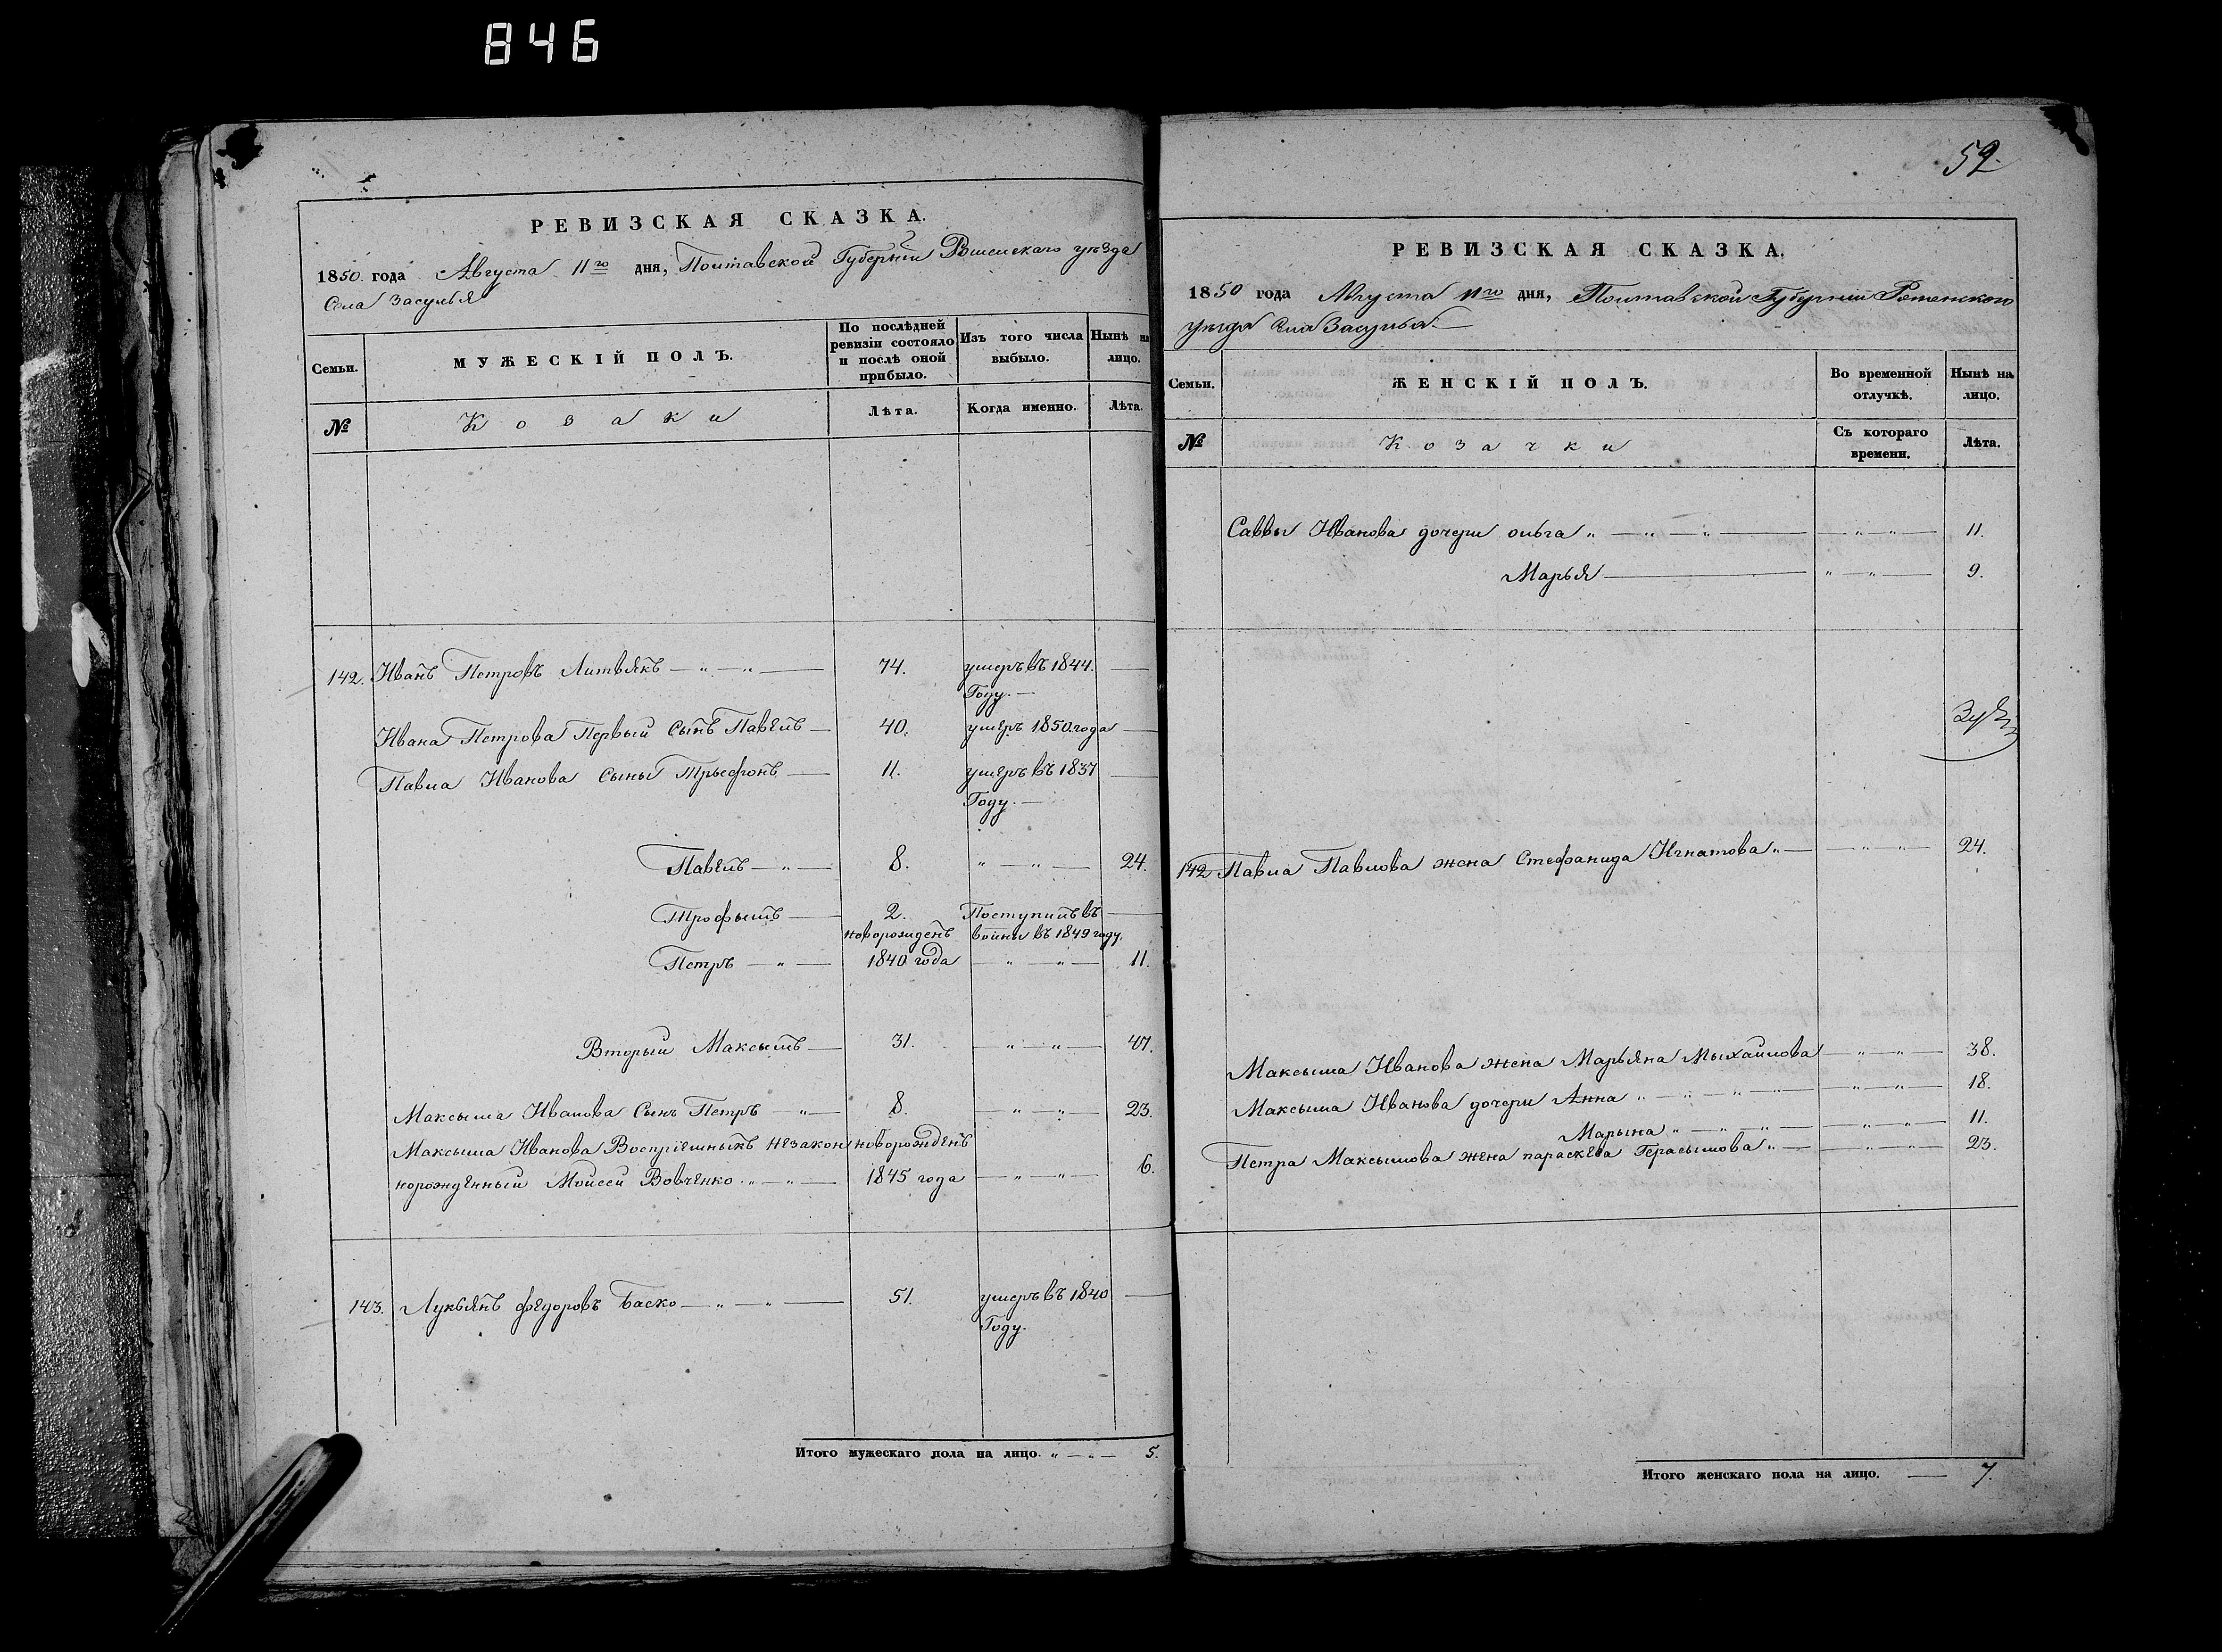 846
РЕВИЗСКАЯ СКАЗКА.
1850. года Августа 11го дня, Полтавской Губерніи Роменскаго уѣзда
Села Засулья
Семьи.
МУЖЕСКІЙ ПОЛЪ.
По послѣдней ревизіи состояло и послѣ оной прибыло.
Изъ того числа выбыло.
Нынѣ на лицо.
№
Козаки
Лѣта.
Когда именно.
Лѣта.
142. Иванъ Петровъ Литвякъ 74. умеръ въ 1844.
Году.
Ивана Петрова Первый сынъ Павелъ 40. умеръ 1850 года
Павла Иванова Сыны Трысфонъ 11. умеръ въ 1837
Году.
Павелъ 8. 24.
Трофымъ 2. Поступилъ въ
новорожденъ войны въ 1849 году.
Петръ 1840 года 11.
Вторый Максымъ 31. 47.
Максыма Иванова Сынъ Петръ 8. 23.
Максыма Иванова Воспріемныкъ незакон новорожденъ
норожденный Мойсей Вовченко 1845 года 6.
143. Лукьянъ федоровъ Баско 51. умеръ въ 1840
Году.
Итого мужескаго пола на лицо. 5.
52.
РЕВИЗСКАЯ СКАЗКА.
1850 года Августа 11го дня, Полтавской Губерніи Роменского
уезда Села Засулья
Семьи.
ЖЕНСКІЙ ПОЛЪ.
Во временной отлучкѣ.
Нынѣ на лицо.
№
Козачки
Съ котораго времени.
Лѣта.
Саввы Иванова дочери ольга 11.
Марья 9.
142 Павла Павлова жена Стефанида Игнатова 24.
Максыма Иванова жена Марьяна Мыхайлова 38.
Максыма Иванова дочери Анна 18.
Марына 11.
Петра Максымова жена параскева Герасымова 23.
Итого женскаго пола на лицо. 7.